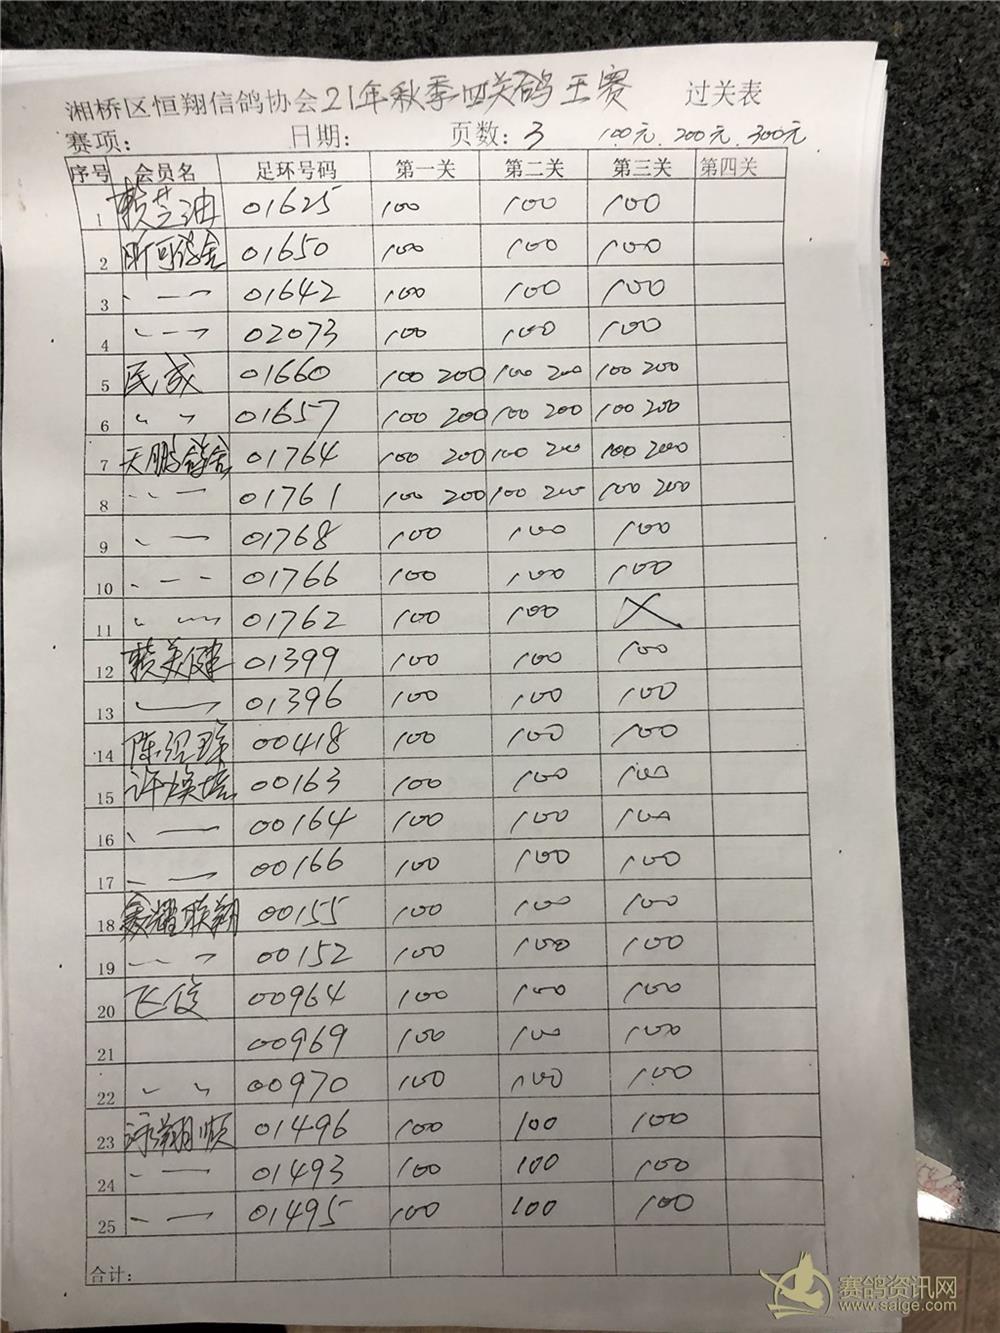 湘桥区恒翔信鸽协会21年秋季四关鸽王赛 过关表
赛项: 日期: 页数: 3 100元.200元.300元
序号 会员名 足环号码 第一关 第二关 第三关 第四关
1 赖芝油 01625 100 100 100
2 昕可鸽舍 01650 100 100 100
3 、一一 01642 100 100 100
4 、一一 02073 100 100 100
5 民成 01660 100 200 100 200 100 200
6 、、 01657 100 200 100 200 100 200
7 天鹏鸽舍 01764 100 200 100 200 100 200
8 、、一 01761 100 200 100 200 100 200
9 、一 01768 100 100 100
10 、一一 01766 100 100 100
11 、一 01762 100 100 X
12 赖美健 01399 100 100 100
13 01396 100 100 100
14 陈 00418 100 100 100
15 许焕培 00163 100 100 100
16 、一 00164 100 100 100
17 、一 00166 100 100 100
18 耀联翔 00155 100 100 100
19 、、、 00152 100 100 100
20 飞 00964 100 100 100
21 00969 100 100 100
22 、、 00970 100 100 100
23 翔顺 01496 100 100 100
24 、一 01493 100 100 100
25 、一 01495 100 100 100
合计:
赛鸽资讯网
www.saige.com